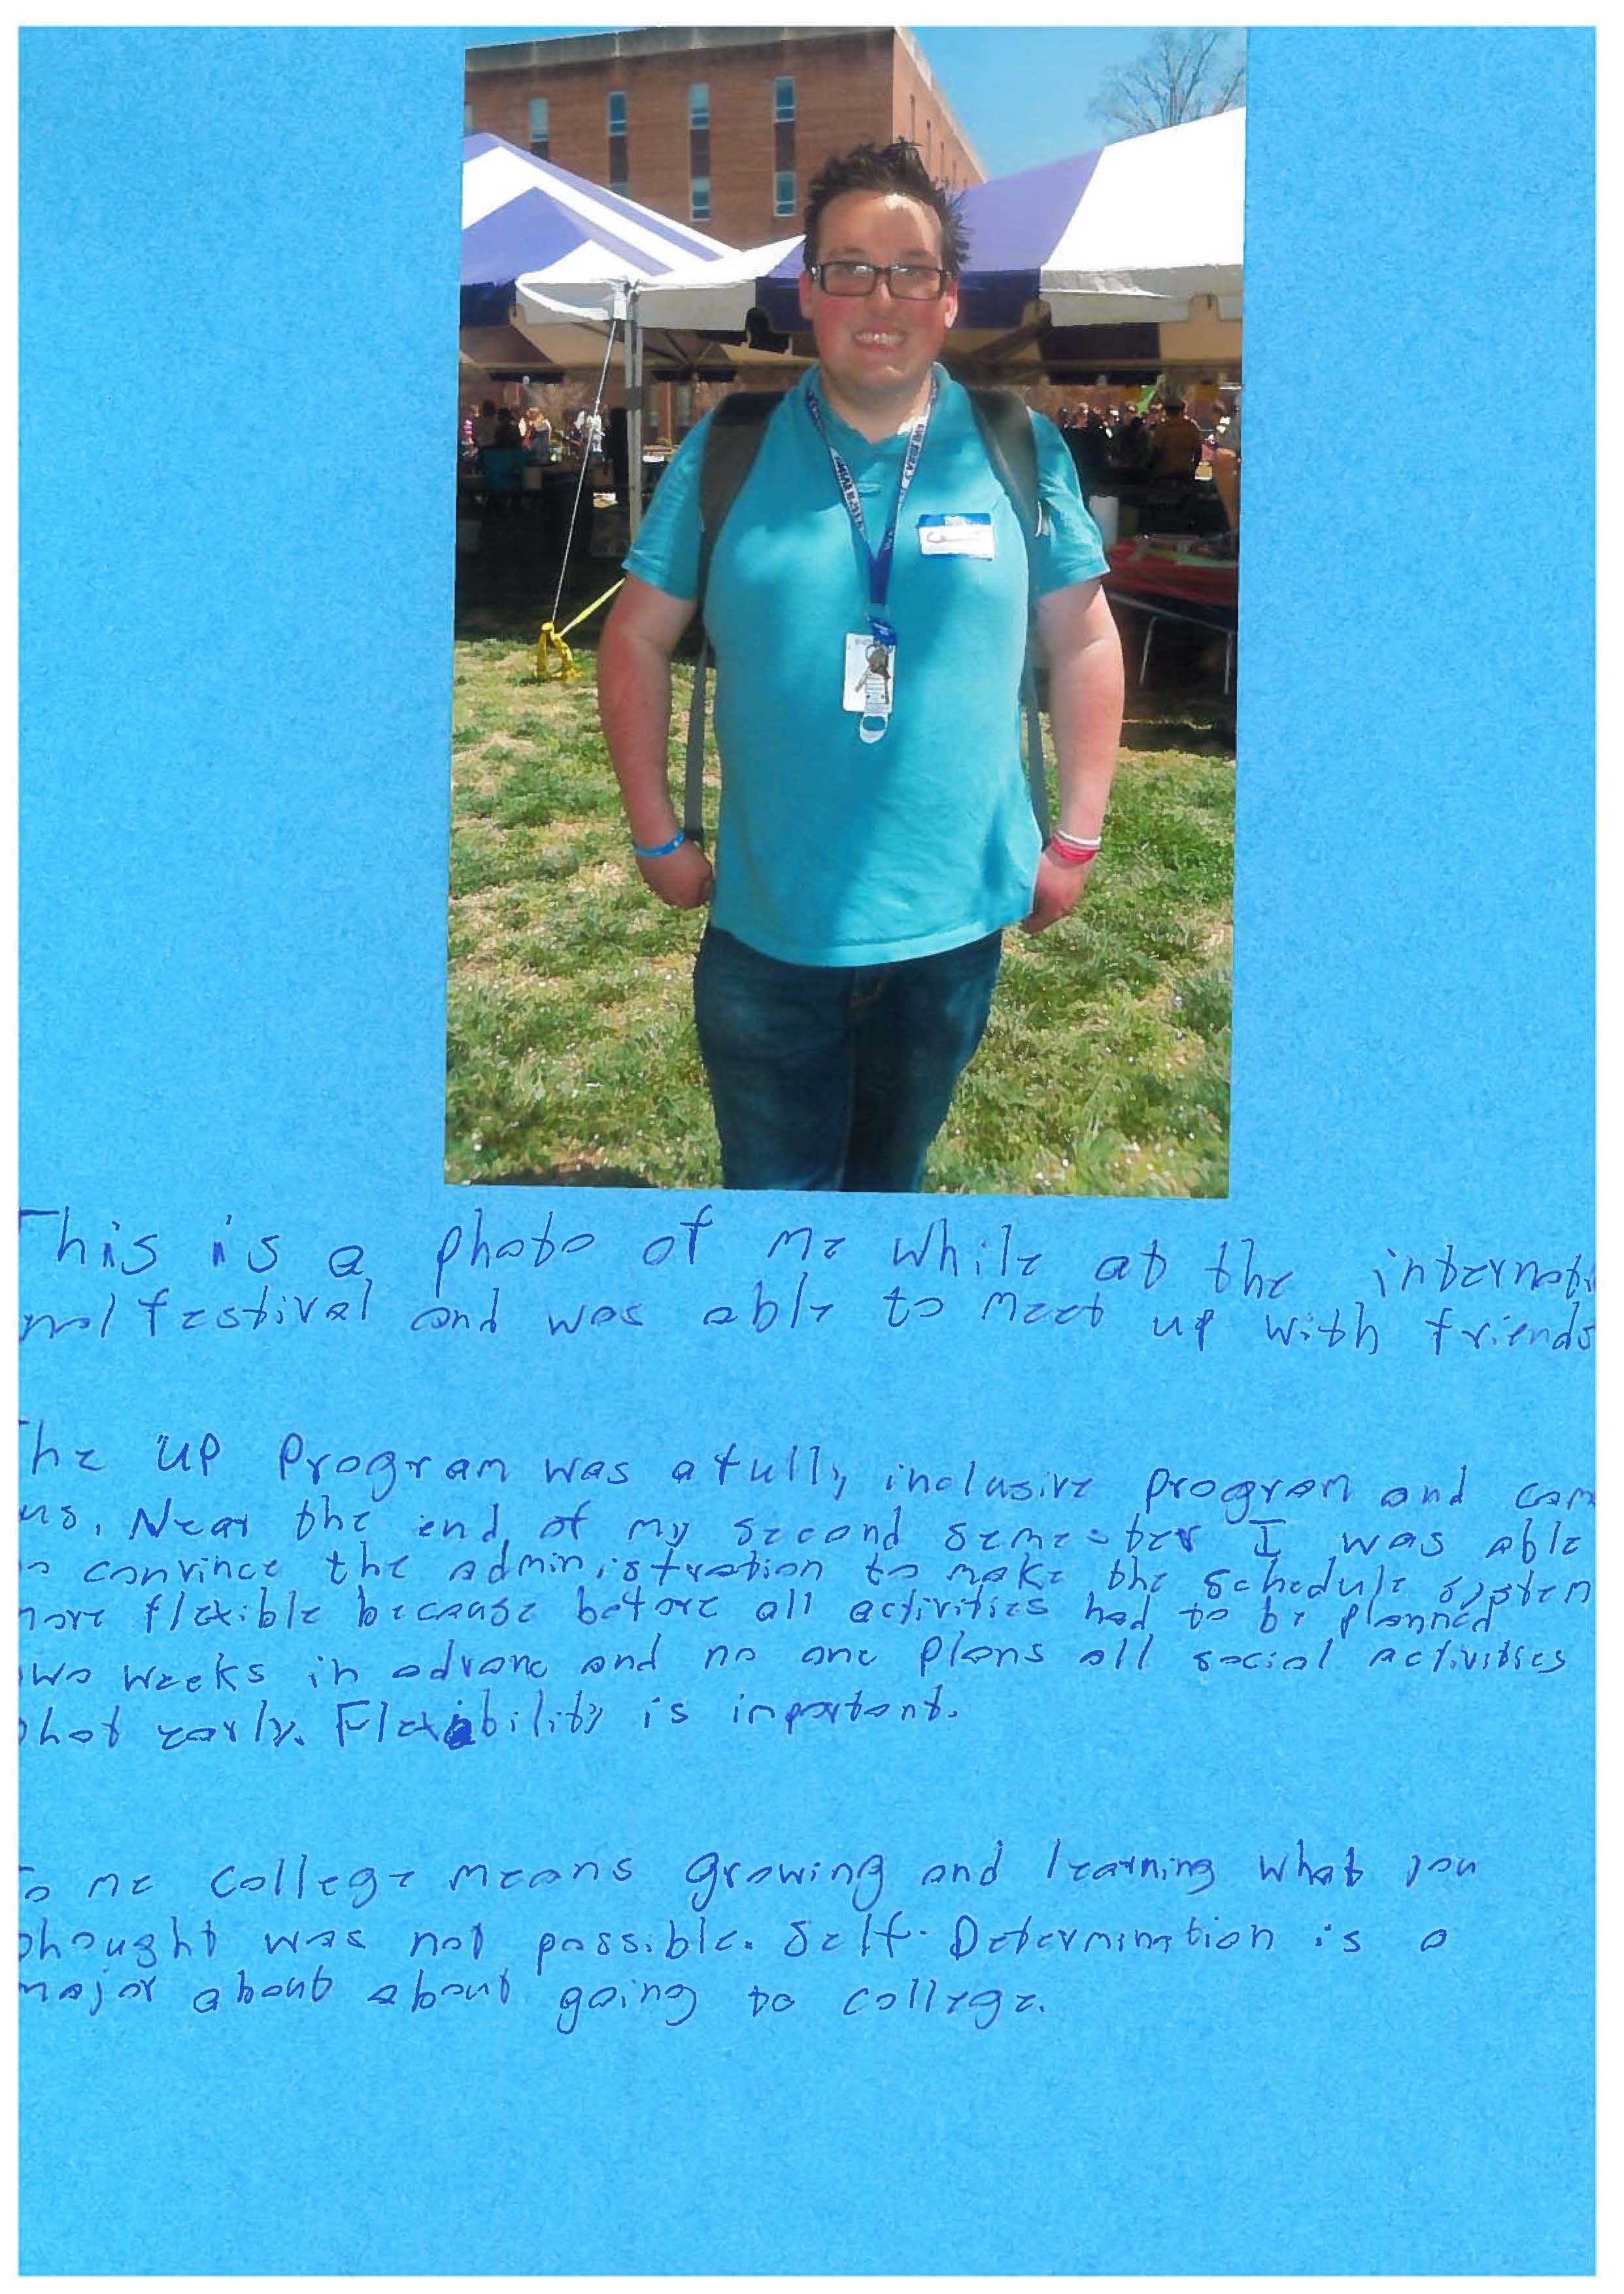 This is a photo of me while at the internati
onal festival and was able to meet up with friends
The UP Program was a fully inclusive program and cam
us. Near the end of my second semester I was able
to convince the administration to make the schedule system
more flexible because before all activities had to be planned
two weeks in advanc and no one plans all social activities
that early. Flexibility is important.
To me college means growing and learning what you
thought was not possible. Self-Determination is a
major about about going to college.